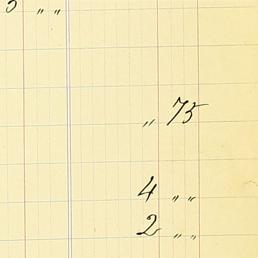 5 " "
" 75
4 " "
2 " "